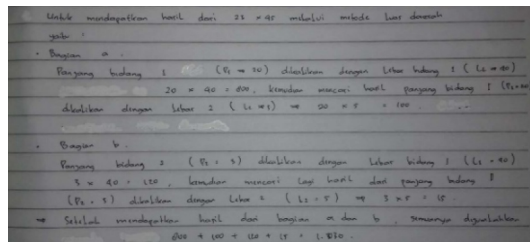 Untuk mendapatkan hasil dari 23 × 45 melalui metode luas daerah
yaitu :
• Bagian a.
Panjang bidang 1 (P₁ = 20) dikalikan dengan Lebar bidang 1 (L₁ = 40)
20 × 40 = 800, kemudian mencari hasil panjang bidang 1 (P₁ = 20)
dikalikan dengan Lebar 2 (L₂ = 5) ⇒ 20 × 5 = 100.
• Bagian b.
Panjang bidang 2 (P₂ = 3) dikalikan dengan Lebar bidang 1 (L₁ = 40)
3 × 40 = 120, kemudian mencari lagi hasil dari panjang bidang
(P₂ = 3) dikalikan dengan Lebar 2 (L₂ = 5) ⇒ 3 × 5 = 15.
⇒ Setelah mendapatkan hasil dari bagian a dan b, semuanya dijumlahkan
800 + 100 + 120 + 15 =